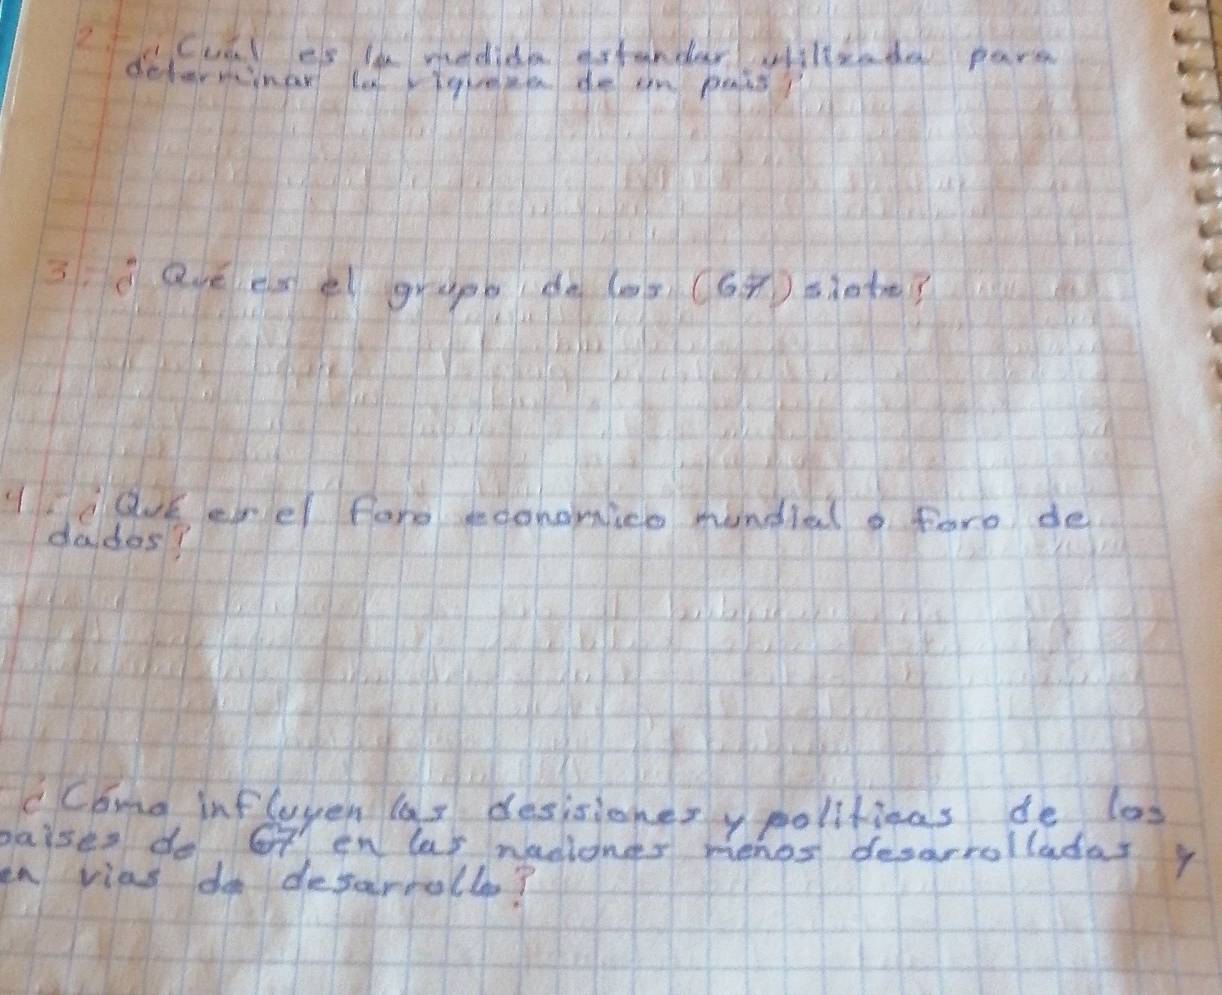 2. ¿Cuál es la medida estandar utilizada para
determinar la riqueza de un pais?
3. ¿Qué es el grupo de los (G7) siete?
4. ¿Qué es el foro economico mundial o foro de
dados?
¿Cómo influyen las desisiones y politicas de los
paises de G7 en las naciones menos desarrolladas y
en vias de desarrollo?